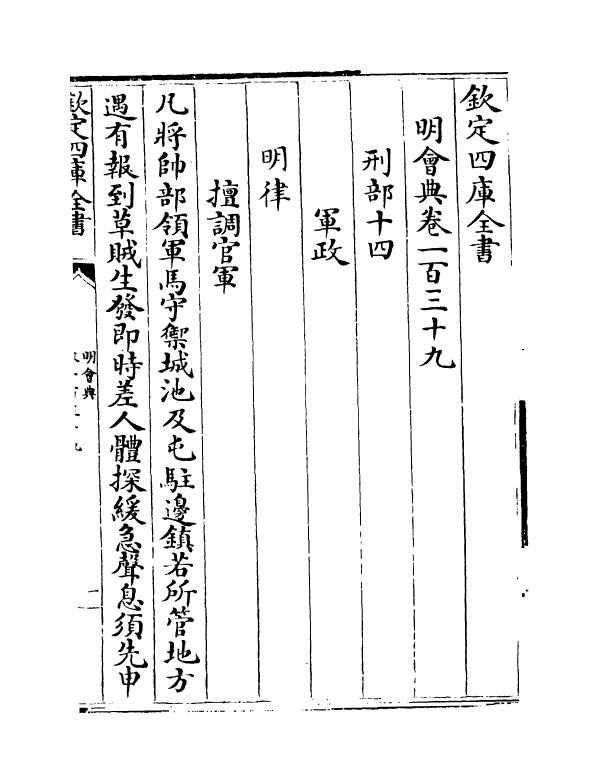 欽定四庫全書
明會典卷一百三十九
刑部十四
軍政
明律
擅調官軍
凡將帥部領軍馬守禦城池及屯駐邊鎮若所管地方
遇有報到草賊生發即時差人體探緩急聲息須先申
欽定四庫全書
明會典